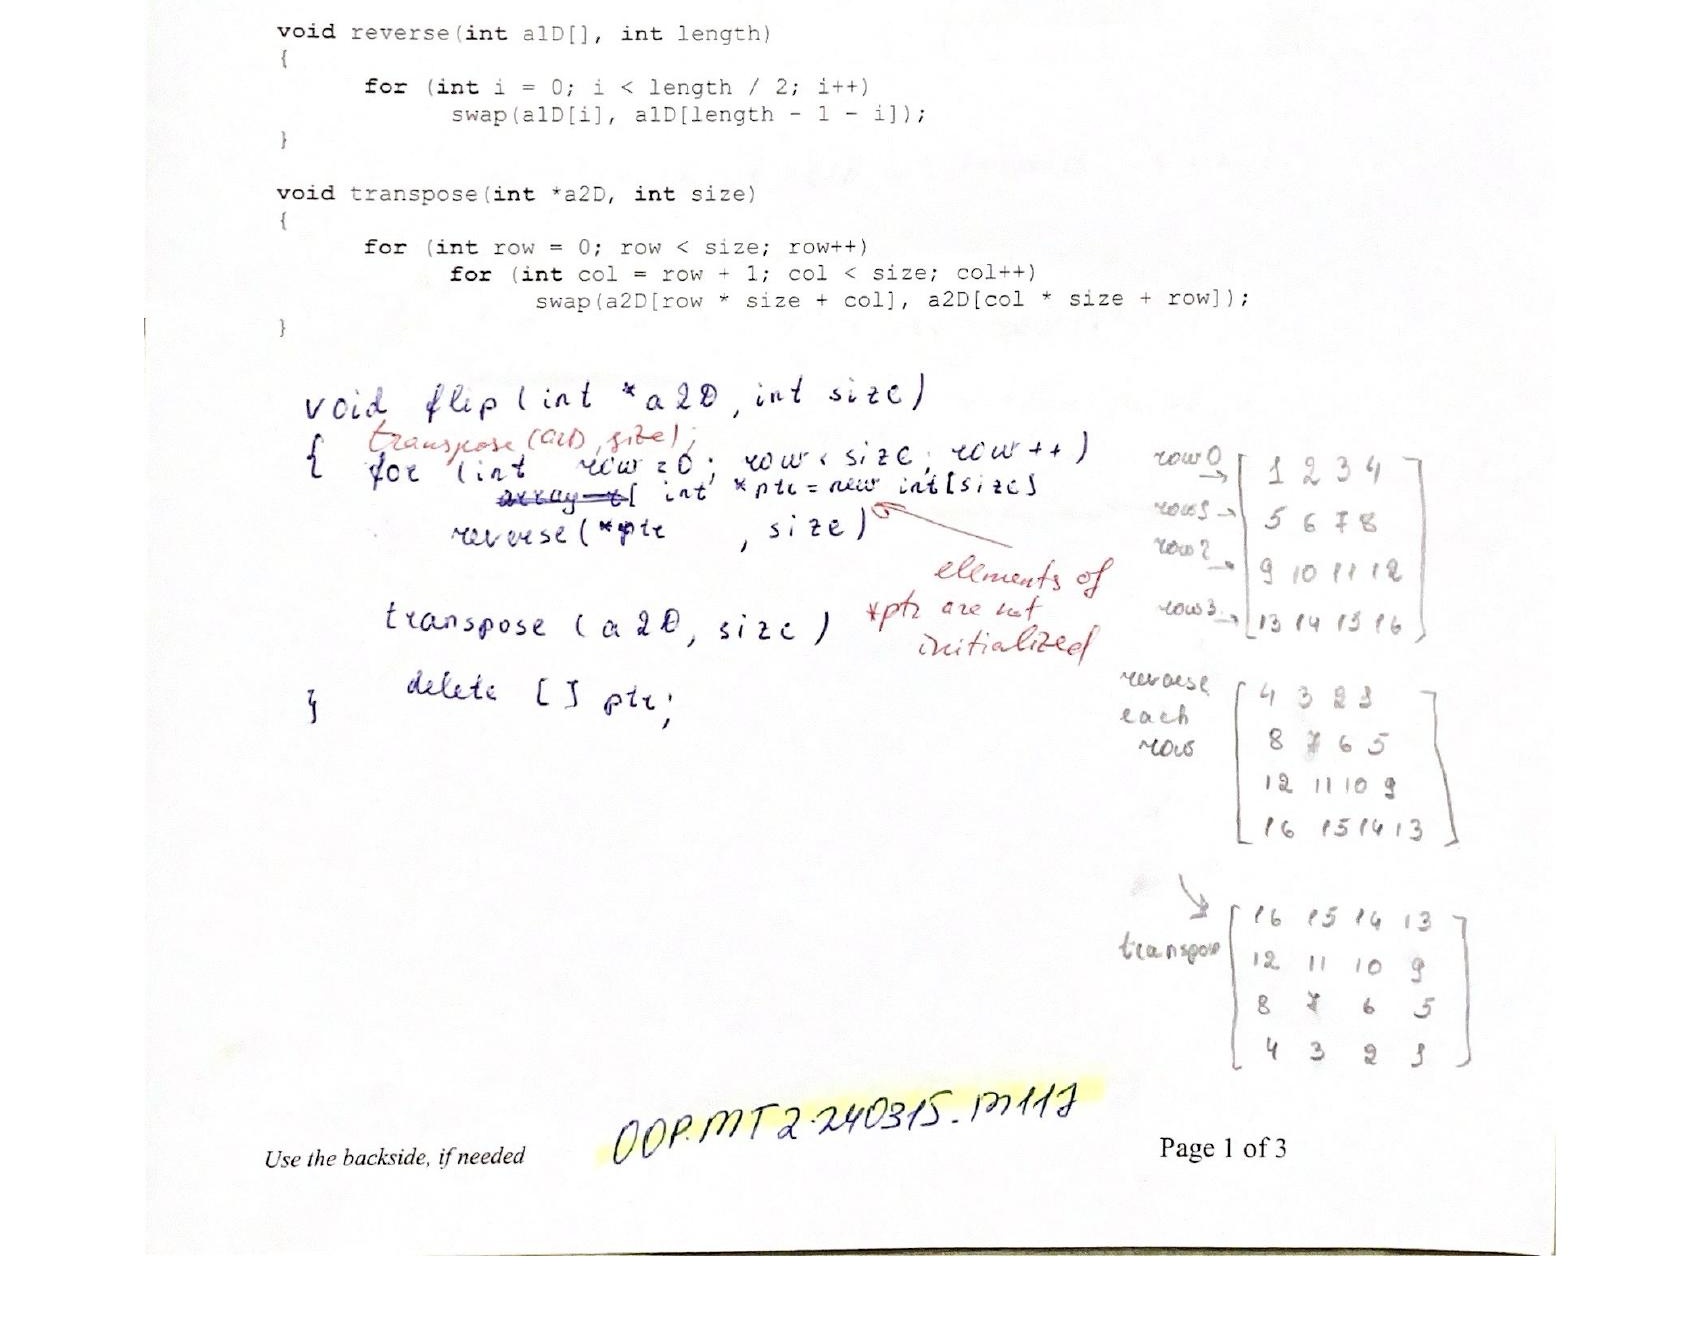 void reverse(int a1D[], int length)
{
for (int i = 0; i < length / 2; i++)
swap(a1D[i], a1D[length - 1 - i]);
}
void transpose(int *a2D, int size)
{
for (int row = 0; row < size; row++)
for (int col = row + 1; col < size; col++)
swap(a2D[row * size + col], a2D[col * size + row]);
}
void flip(int *a2D, int size)
transpose(a2D, size);
{ for (int row = 0; row < size; row++)
int *ptr = new int[size]
reverse(*ptr , size)
elements of
*ptr are not
initialized
transpose (a2D, size)
delete [] ptr;
}
row0 → 1 2 3 4
row1 → 5 6 7 8
row2 → 9 10 11 12
row3 → 13 14 15 16
reverse
each
row
4 3 2 1
8 7 6 5
12 11 10 9
16 15 14 13
transpose
16 15 14 13
12 11 10 9
8 7 6 5
4 3 2 1
OOP.MT2.240315.M117
Use the backside, if needed
Page 1 of 3